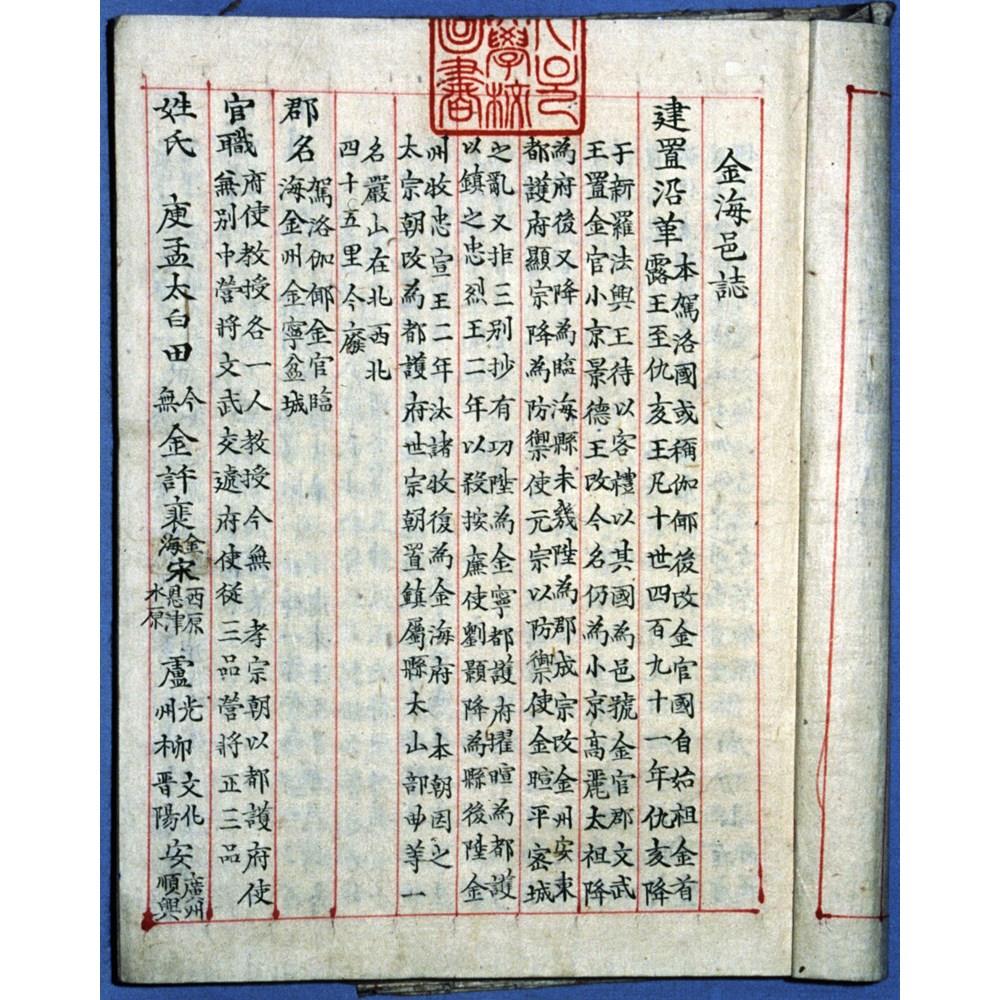 金海邑誌
建置沿革 本駕洛國或稱伽倻後改金官國自始祖金首
露王至仇亥王凡十世四百九十一年仇亥降
于新羅法興王待以客禮以其國為邑號金官郡文武
王置金官小京景德王改今名仍為小京高麗太祖降
為府後又降為臨海縣未幾陞為郡成宗改金州安東
都護府顯宗降為防禦使元宗以防禦使金暄平密城
之亂又拒三别抄有功陞為金寧都護府擢暄為都護
以鎮之忠烈王二年以殺按廉使劉顥降為縣後陞金
州牧忠宣王二年汰諸牧復為金海府 本朝因之
太宗朝改為都護府世宗朝置鎮屬縣太山部曲等一
名嚴山在北西北
四十五里今廢
郡名 駕洛伽倻金官臨
海金州金寧盆城
官職 府使教授各一人教授今無孝宗朝以都護府使
兼别中營將文武交遞府使從三品營將正三品
姓氏 庾孟太白田 今無 金許裵 金海 宋 西原恩津水原 盧 光州 柳 文化晋陽 安 廣州順興